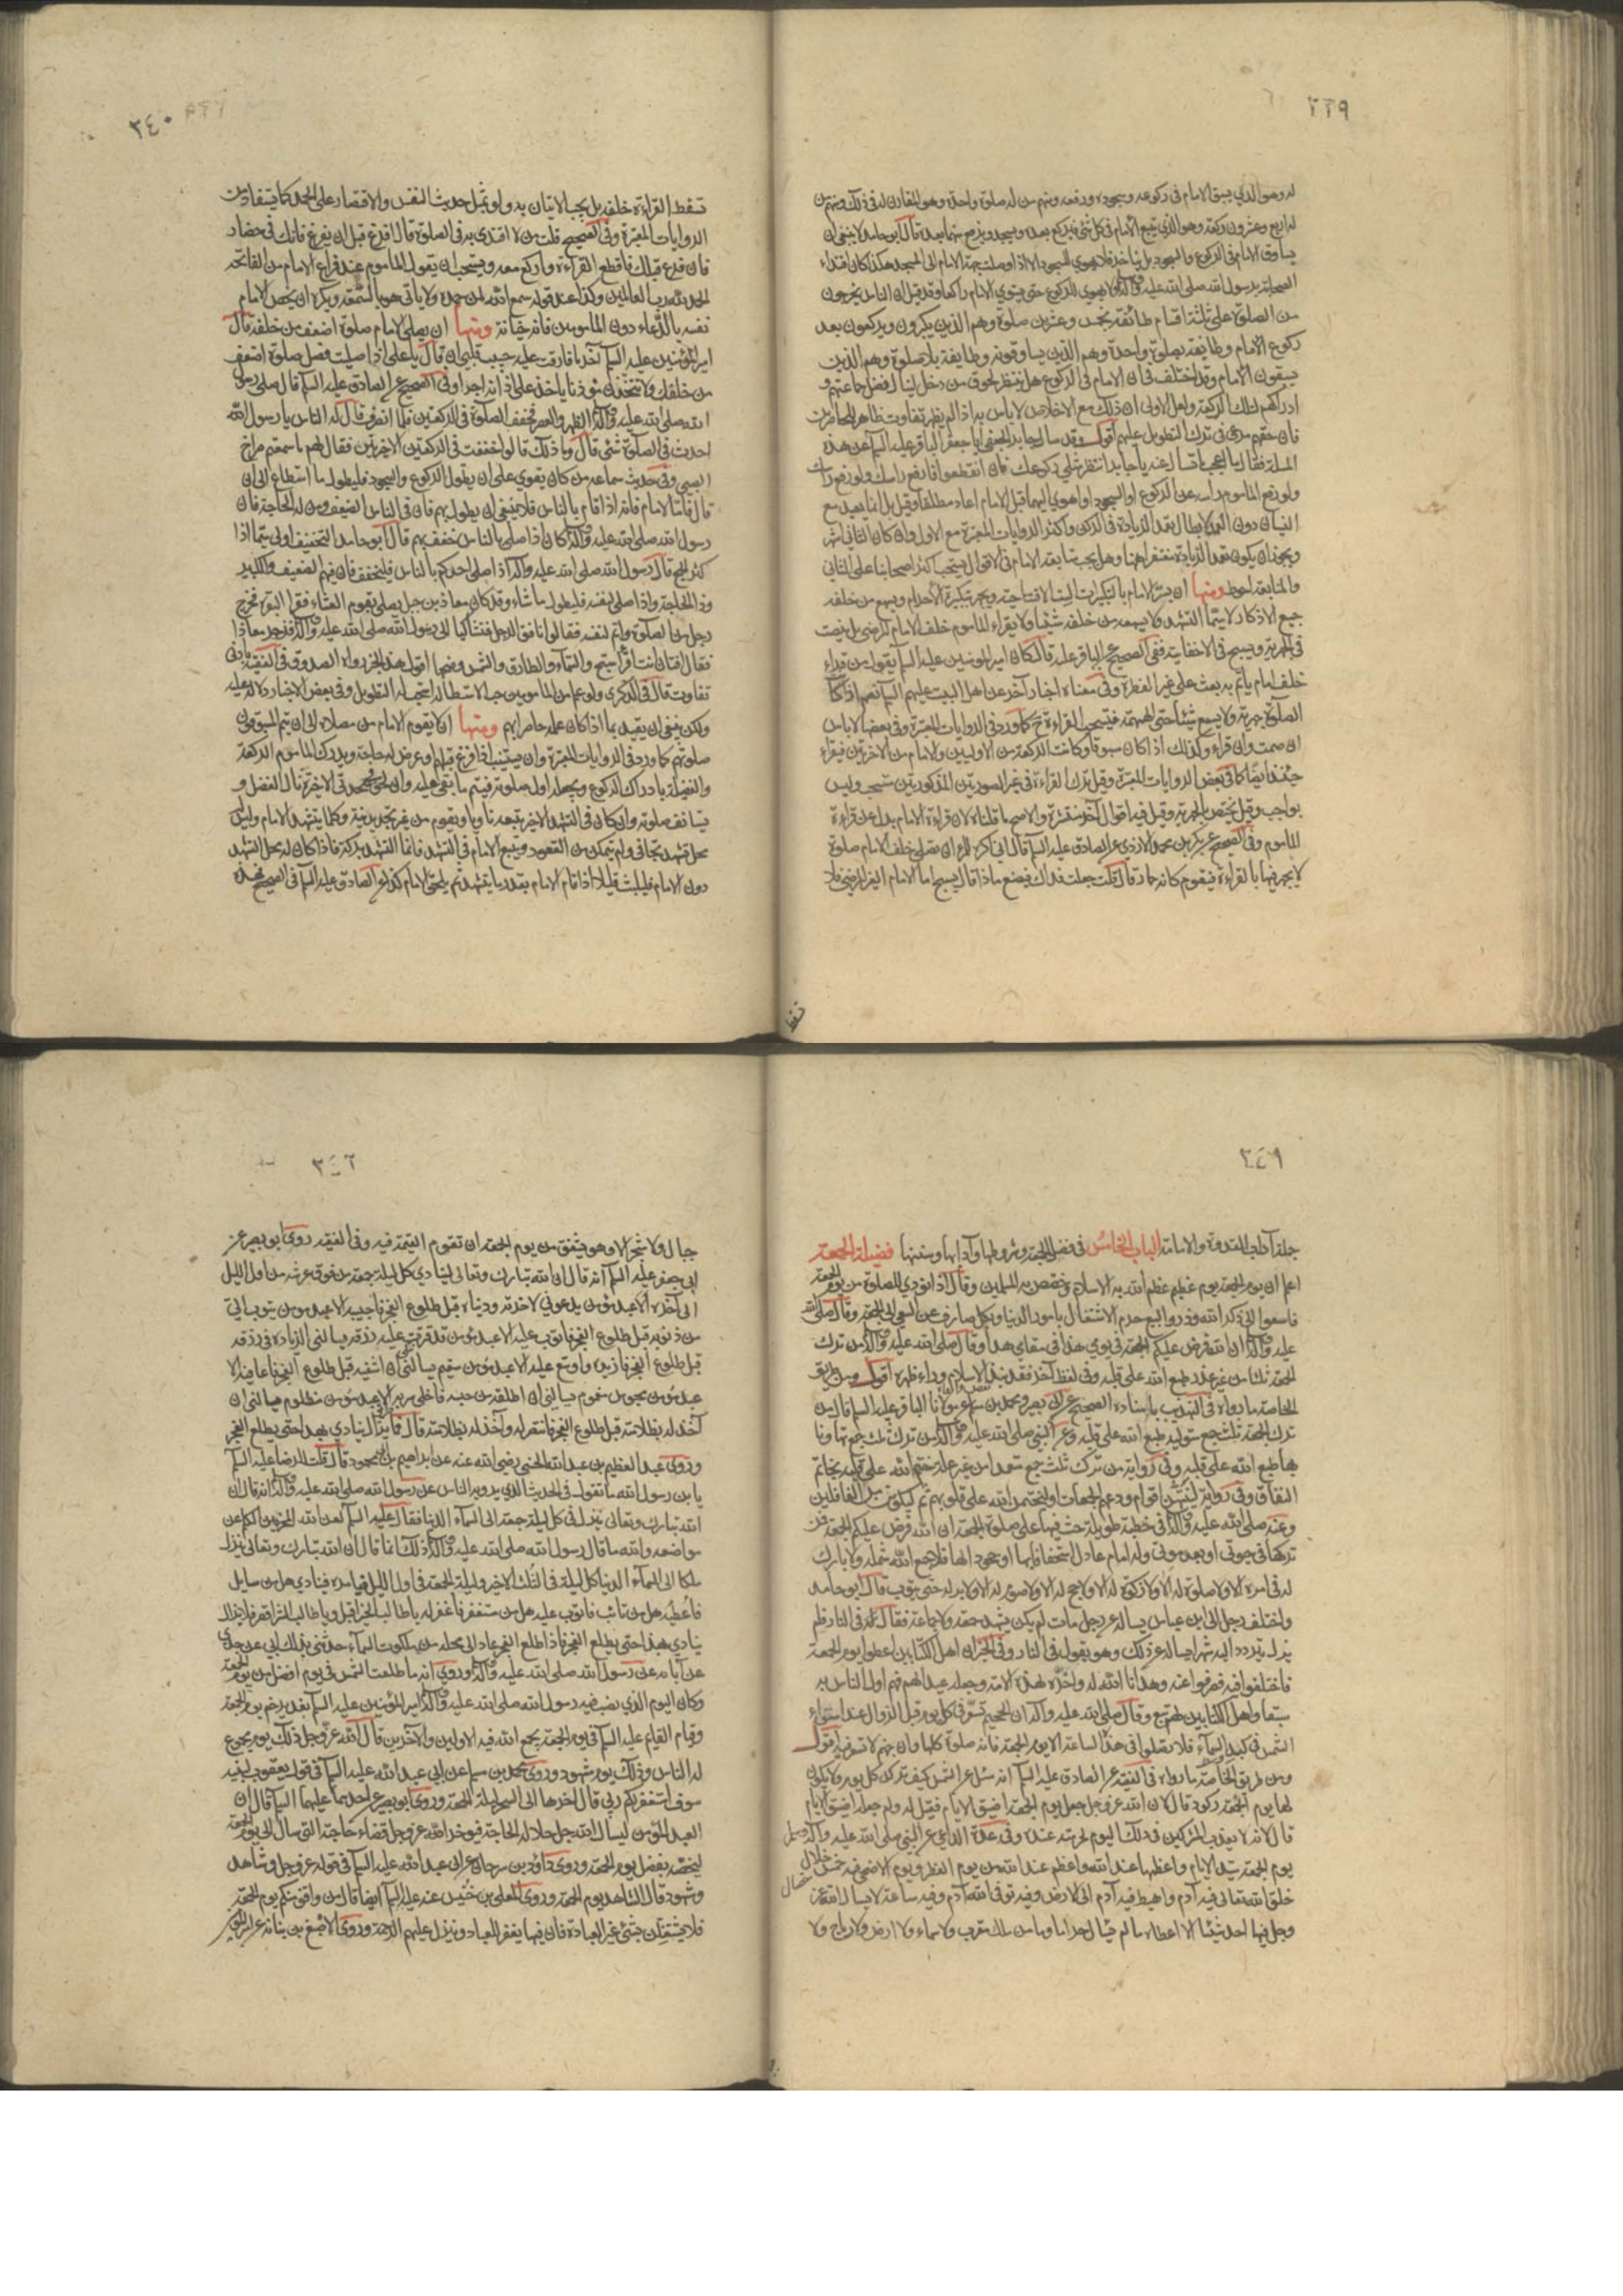 ٢٣٩
له وهو الذي يسبق الامام في ركوعه وسجوده ورفعه ومنهم من له صلوة واحدة وهو المقارن له في ذلك ومنهم من
له اربع وعشرون ركعة وهو الذي يتبع الامام في كل شئ فيركع بعده ويسجد ويرفع منهما بعده قال ابو حامد لا ينبغي ان
يساوق الامام في الركوع والسجود بل يتاخر فلا يهوي للسجود الا اذا وصلت جبهة الامام الى المسجد هكذا كان اقتداء
الصحابة برسول الله صلى الله عليه وآله ولا يهوي للركوع حتى يستوي الامام راكعا وقد قيل ان الناس يخرجون
من الصلوة على ثلثة اقسام طائفة بخمس وعشرين صلوة وهم الذين يكبرون ويركعون بعد
ركوع الامام وطائفة بصلوة واحدة وهم الذين يساوقونه وطايفة بلا صلوة وهم الذين
يسبقون الامام وقد اختلف في ان الامام في الركوع هل ينتظر لحوق من دخل لينال فضل جماعتهم و
ادراكهم لتلك الركعة ولعل الاولى ان ذلك مع الاخلاص لا باس به اذا لم يظهر تفاوت ظاهر للحاضرين
فان حقهم مرعى في ترك التطويل عليهم اقول وقد سال جابر الجعفي ابا جعفر الباقر عليه السلم عن هذه
المسلة فقال ما اعجب ما تسال عنه يا جابر انتظر مثلي ركوعك فان انقطعوا فارفع راسك ولو رفع راسك
ولو رفع الماموم راسه عن الركوع او السجود او اهوى اليهما قبل الامام اعاد مطلقا وقيل بل انما يعيد مع
النسيان دون العمد لابطال تعمد الزيادة في الركن واكثر الروايات المعتبرة مع الاول وان كان الثاني اشهر
ويجوز ان يكون تعمد الزيادة مغتفرا هنا وهل يجب متابعة الامام في الاقوال يستحب اكثر اصحابنا على الثاني
والمتابعة احوط ومنها ان يسر الامام بالتكبيرات الست الافتتاحية ويجهر بتكبيرة الاحرام ويسمع من خلفه
جميع الاذكار لا سيما التشهد ولا يسمعه من خلفه شيئا ولا يقراء الماموم خلف الامام المرضي بل ينصت
في الجهرية ويسبح في الاخفاتية ففي الصحيح عن الباقر عليه قال كان امير المؤمنين عليه السلم يقول من قراء
خلف امام ياتم به بعث على غير الفطرة وفي معناه اخبار آخر عن اهل البيت عليهم السلم نعم اذا كانت
الصلوة جهرية ولا يسمع شيئا حتى الهمهمة فيستحب القراءة ح كما ورد في الروايات المعتبرة وفي بعضها لا باس
ان صمت وان قراء وكذلك اذا كان مسبوقا وكانت الركعة من الاوليين والامام من الاخرتين فيقراء
حينئذ ايضا كما في بعض الروايات المعتبرة وقيل ترك القراءة في غير الصورتين المذكورتين مستحب وليس
بواجب وقيل يختص بالجهرية وقيل فيه اقوال آخر منتشرة والاصح ما قلناه لان قراءة الامام بدل عن قراءة
الماموم وفي الصحيح عن بكر بن محمد الازدي عن الصادق عليه السلم قال اني اكره للمرء ان يصلي خلف الامام صلوة
لا يجهر فيها بالقراءة فيقوم كانه حمار قال قلت جعلت فداك فيصنع ماذا قال يسبح اما الامام الغير المرضي فلا
تسقط
٣٤٠
تسقط القراءة خلفه بل يجب الاتيان به ولو بمثل حديث النفس والاقتصار على الحمد كما يستفاد من
الروايات المعتبرة وفي الصحيح قلت من لا اقتدى به في الصلوة قال افرغ قبل ان يفرغ فانك في حصار
فان فرغ قبلك فاقطع القراءة واركع معه ويستحب ان يقول الماموم عند فراغ الامام من الفاتحة
الحمد لله رب العالمين وكذا عند قوله سمع الله لمن حمده ولا ياتي هو بالسمعة ويكره ان يخص الامام
نفسه بالدعاء دون المامومين فانه خيانة ومنها ان يصلي الامام صلوة اضعف من خلفه قال
امير المؤمنين عليه السلم آخر ما فارقت عليه حبيب قلبي ان قال يا علي اذا صليت فصل صلوة اضعف
من خلفك ولا تتخذن مؤذنا ياخذ على اذانه اجرا وفي الصحيح عن الصادق عليه السلم قال صلى رسول
الله صلى الله عليه وآله الظهر والعصر فخفف الصلوة في الركعتين فلما انصرف قال له الناس يا رسول الله
احدث في الصلوة شئ قال وما ذلك قالوا خففت في الركعتين الاخرتين فقال لهم ما سمعتم صراخ
الصبي وفي حديث سماعة من كان يقوى على ان يطول الركوع والسجود فليطول ما استطاع الى ان
قال فاما الامام فانه اذا قام بالناس فلا ينبغي ان يطول بهم فان في الناس الضعيف ومن له الحاجة فان
رسول الله صلى الله عليه وآله كان اذا صلى بالناس خفف بهم قال ابو حامد التخفيف اولى سيما اذا
كثر الجمع قال رسول الله صلى الله عليه وآله اذا صلى احدكم بالناس فليخفف فان فيهم الضعيف والكبير
وذا الحاجة واذا صلى لنفسه فليطول ما شاء وقد كان معاذ بن جبل يصلي بقوم العشاء فقرا البقرة فخرج
رجل من الصلوة واتم لنفسه فقالوا نافق الرجل فتشاكيا الى رسول الله صلى الله عليه وآله فزجر معاذا
فقال افتان انت اقرأ سبح والسماء والطارق والشمس وضحيها اقول هذا الخبر رواه الصدوق في الفقيه بادنى
تفاوت قال في الذكرى ولو علم من المامومين حب الاستطالة استحب له التطويل وفي بعض الاخبار دلالة عليه
ولكن ينبغي ان يقيد بما اذا كان علمه حاضرا بهم ومنها ان لا يقوم الامام من مصلاه الى ان يتم المسبوقون
صلوتهم كما ورد في الروايات المعتبرة وان يستنيب اذا فرغ قبلهم او عرض له حاجة ويدرك الماموم الركعة
والفضيلة بادراك الركوع ويجعله اول صلوته فيتم ما بقى عليه وان لحق سجدتي الاخيرة نال الفضل و
يستانف صلوته وان كان في التشهد الاخير تبعه ناويا ويقوم من غير تجديد نية وكلما يتشهد الامام وليس
محل تشهده تجافى ولم يتمكن من القعود ويتبع الامام في التشهد فانما التشهد بركة فاذا كان له محل التشهد
دون الامام فليلبث قليلا اذا قام الامام بقدر ما يتشهد ثم يلحق الامام كذا عن الصادق عليه السلم في الصحيح فهذه
٣٤١
جملة آداب القدوة والامامة الباب الخامس في فضل الجمعة وشروطها وآدابها وسننها فضيلة الجمعة
اعلم ان يوم الجمعة يوم عظيم عظم الله به الاسلام وخصص به المسلمين وقال اذا نودي للصلوة من يوم الجمعة
فاسعوا الى ذكر الله وذروا البيع حرم الاشتغال بامور الدنيا وبكل صارف عن السعى الى الجمعة وقال صلى الله
عليه وآله ان الله فرض عليكم الجمعة في يومي هذا في مقامي هذا وقال صلى الله عليه وآله من ترك
الجمعة ثلثا من غير عذر طبع الله على قلبه وفي لفظ آخر فقد نبذ الاسلام وراء ظهره اقول ومن طريق
الخاصة ما رواه في التهذيب باسناده الصحيح عن ابي بصير ومحمد بن مسلم عن مولانا الباقر عليه السلم قال من
ترك الجمعة ثلث جمع متوالية طبع الله على قلبه وعن النبي صلى الله عليه وآله من ترك ثلث جمع تهاونا
بها طبع الله على قلبه وفي رواية من ترك ثلث جمع متعمدا من غير علة ختم الله على قلبه بخاتم
النفاق وفي رواية لينتهين اقوام ودعهم الجمعات او ليختمن الله على قلوبهم ثم ليكونن من الغافلين
وعنه صلى الله عليه وآله في خطبة طويلة حث فيها على صلوة الجمعة ان الله فرض عليكم الجمعة فمن
تركها في حيوتي او بعد موتي وله امام عادل استخفافا بها او جحودا لها فلا جمع الله شمله ولا بارك
له في امره الا ولا صلوة له الا ولا زكوة له الا ولا حج له الا ولا صوم له الا ولا بر له حتى يتوب قال ابو حامد
واختلف رجل الى ابن عباس يساله عن رجل مات لم يكن يشهد جمعة ولا جماعة فقال له في النار فلم
يزل يتردد اليه شهرا يساله عن ذلك وهو يقول في النار وفي الخبر ان اهل الكتابين اعطوا يوم الجمعة
فاختلفوا فيه فصرفوا عنه وهدانا الله له واخره لهذه الامة وجعله عيدا لهم فهم اولى الناس به
سبقا واهل الكتابين لهم تبع وقال صلى الله عليه وآله ان الجحيم تسعر في كل يوم قبل الزوال عند استواء
الشمس في كبد السماء فلا تصلوا في هذه الساعة الا يوم الجمعة فانه صلوة كلها وان جهنم لا تسعر فيه اقول
ومن طريق الخاصة ما رواه في الفقيه عن الصادق عليه السلم انه سئل عن الشمس كيف تركد كل يوم ولا يكون
لها يوم الجمعة ركود قال لان الله عز وجل جعل يوم الجمعة اضيق الايام فقيل له ولم جعله اضيق الايام
قال لانه لا يعذب المشركين في ذلك اليوم لحرمته عنده وفي عدة الداعي عن النبي صلى الله عليه وآله وسلم
يوم الجمعة سيد الايام واعظمها عند الله واعظم عند الله من يوم الفطر ويوم الاضحى فيه خمس خلال
خصال
خلق الله تعالى فيه آدم واهبط فيه آدم الى الارض وفيه توفى الله آدم وفيه ساعة لا يسال الله عز
وجل فيها احد شيئا الا اعطاه ما لم يسال حراما وما من ملك مقرب ولا سماء ولا ارض ولا رياح ولا
٣٤٢
جبال ولا شجر الا وهو يشفق من يوم الجمعة ان تقوم القيمة فيه وفي الفقيه روى ابو بصير عن
ابي جعفر عليه السلم انه قال ان الله تبارك وتعالى لينادي كل ليلة جمعة من فوق عرشه من اول الليل
الى آخره الا عبد مؤمن يدعوني لآخرته ودنياه قبل طلوع الفجر فاجيبه الا عبد مؤمن يتوب الي
من ذنوبه قبل طلوع الفجر فاتوب عليه الا عبد مؤمن قد قترت عليه رزقه يسالني الزيادة في رزقه
قبل طلوع الفجر فازيده واوسع عليه الا عبد مؤمن سقيم يسالني ان اشفيه قبل طلوع الفجر فاعافيه الا
عبد مؤمن محبوس مغموم يسالني ان اطلقه من حبسه فاخلي سربه الا عبد مؤمن مظلوم يسالني ان
آخذ له بظلامته قبل طلوع الفجر فانتصر له وآخذ له بظلامته قال فما يزال ينادي بهذا حتى يطلع الفجر
وروى عبد العظيم بن عبد الله الحسني رضي الله عنه عن ابراهيم بن ابي محمود قال قلت للرضا عليه السلم
يا بن رسول الله ما تقول في الحديث الذي يرويه الناس عن رسول الله صلى الله عليه وآله انه قال ان
الله تبارك وتعالى ينزل في كل ليلة جمعة الى السماء الدنيا فقال عليه السلم لعن الله المحرفين الكلم عن
مواضعه والله ما قال رسول الله صلى الله عليه وآله ذلك انما قال ان الله تبارك وتعالى ينزل
ملكا الى السماء الدنيا كل ليلة في الثلث الاخير وليلة الجمعة في اول الليل فيامره فينادي هل من سايل
فاعطيه هل من تائب فاتوب عليه هل من مستغفر فاغفر له يا طالب الخير اقبل ويا طالب الشر اقصر فلا يزال
ينادي بهذا حتى يطلع الفجر فاذا طلع الفجر عاد الى محله من ملكوت السماء حدثني بذلك ابي عن جدي
عن آبائه عن رسول الله صلى الله عليه وآله وروى انه ما طلعت الشمس في يوم افضل من يوم الجمعة
وكان اليوم الذي نصب فيه رسول الله صلى الله عليه وآله امير المؤمنين عليه السلم بغدير خم يوم الجمعة
وقيام القايم عليه السلم في يوم الجمعة يجمع الله فيه الاولين والآخرين قال الله عز وجل ذلك يوم مجموع
له الناس وذلك يوم مشهود وروى محمد بن مسلم عن ابي عبد الله عليه السلم في قول يعقوب لبنيه
سوف استغفر لكم ربي قال اخرها الى السحر ليلة الجمعة وروى ابو بصير عن احدهما عليهما السلم قال ان
العبد المؤمن ليسال الله جل جلاله الحاجة فيؤخر الله عز وجل قضاء حاجته التي سال الى يوم الجمعة
ليخصه بفضل يوم الجمعة وروى داود بن سرحان عن ابي عبد الله عليه السلم في قوله عز وجل وشاهد
ومشهود قال الشاهد يوم الجمعة وروى المعلى بن خنيس عنه عليه السلم ايضا قال من وافق منكم يوم الجمعة
فلا يشتغلن بشئ غير العبادة فان فيها يغفر للعباد وتنزل عليهم الرحمة وروى الاصبغ بن نباتة عن امير المؤمنين